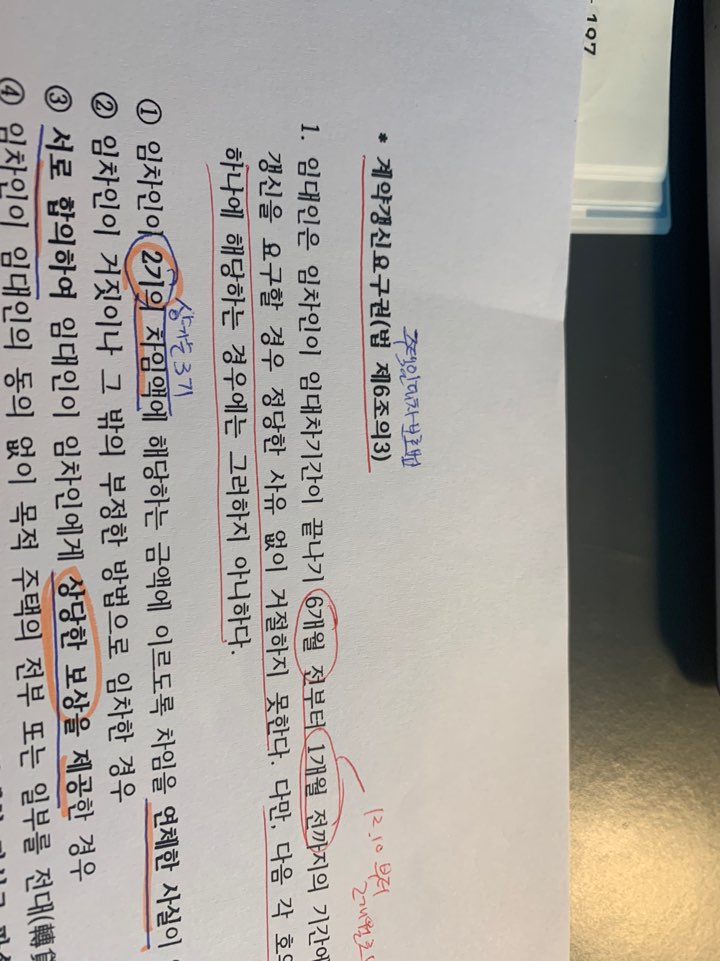 197
주택임대차보호법
* 계약갱신요구권(법 제6조의3)
12.10 부터
2개월
1. 임대인은 임차인이 임대차기간이 끝나기 6개월 전부터 1개월 전까지의 기간에
갱신을 요구할 경우 정당한 사유 없이 거절하지 못한다. 다만, 다음 각 호의
하나에 해당하는 경우에는 그러하지 아니하다.
상가는 3기
① 임차인이 2기의 차임액에 해당하는 금액에 이르도록 차임을 연체한 사실이
② 임차인이 거짓이나 그 밖의 부정한 방법으로 임차한 경우
③ 서로 합의하여 임대인이 임차인에게 상당한 보상을 제공한 경우
④ 임차인이 임대인의 동의 없이 목적 주택의 전부 또는 일부를 전대(轉貸